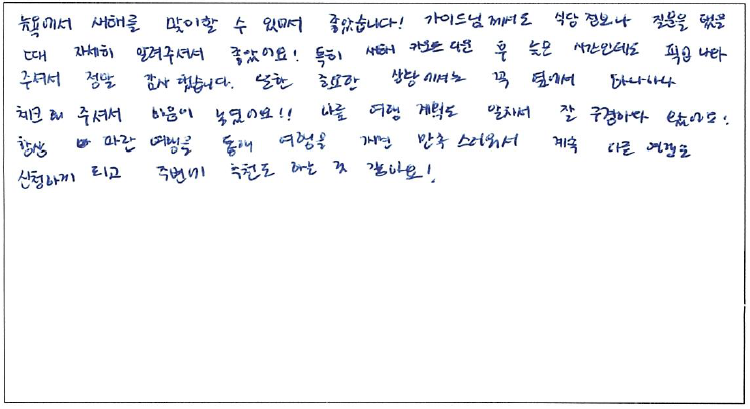 뉴욕에서 새해를 맞이할 수 있어서 좋았습니다! 가이드님께서도 식당 정보나 질문을 했을
때 자세히 알려주셔서 좋았어요! 특히 새해 카운트 다운 후 늦은 시간인데도 픽업 나와
주셔서 정말 감사했습니다. 또한 중요한 상황에서는 꼭 옆에서 하나하나
체크해 주셔서 마음이 놓였어요!! 다음 여행 계획도 알차서 잘 구경하다 왔어요!
항상 파란 여행을 통해 여행을 가면 만족스러워서 계속 다른 여행도
신청하게 되고 주변에 추천도 하는 것 같아요!